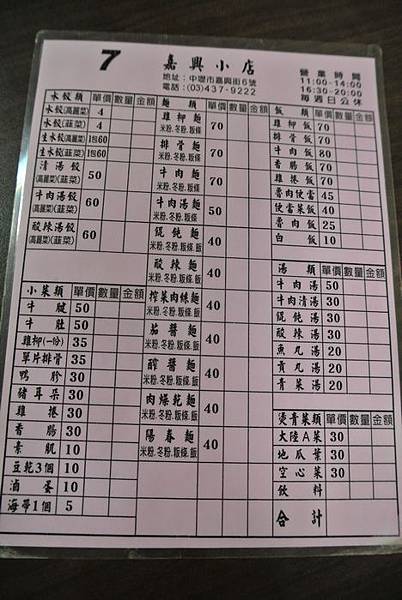 7 嘉興小店
地址：中壢市嘉興街6號
電話：(03)437-9222
營業時間
11:00-14:00
16:30-20:00
每週日公休
水餃類 單價 數量 金額
水餃(高麗菜) 4
水餃(韭菜) 4
生水餃(高麗菜) 1包60
生水餃(韭菜) 1包60
清湯餃 (高麗菜)(韭菜) 50
牛肉湯餃 (高麗菜)(韭菜) 60
酸辣湯餃 (高麗菜)(韭菜) 60
小菜類 單價 數量 金額
牛腱 50
牛肚 50
雞柳(一份) 35
單片排骨 35
鴨胗 30
豬耳朵 30
雞捲 30
香腸 30
素肌 10
豆乾3個 10
滷蛋 10
海帶1個 5
麵類 單價 數量 金額
雞柳麵 米粉.冬粉.粄條 70
排骨麵 米粉.冬粉.粄條 70
牛肉麵 米粉.冬粉.粄條 70
牛肉湯麵 米粉.冬粉.粄條 50
餛飩麵 米粉.冬粉.粄條.飯 40
酸辣麵 米粉.冬粉.粄條.飯 40
榨菜肉絲麵 米粉.冬粉.粄條.飯 40
茄醬麵 米粉.冬粉.粄條.飯 40
醡醬麵 米粉.冬粉.粄條.飯 40
肉燥乾麵 米粉.冬粉.粄條.飯 40
陽春麵 米粉.冬粉.粄條.飯 40
飯類 單價 數量 金額
雞柳飯 70
排骨飯 70
牛肉飯 80
香腸飯 70
雞捲飯 70
魯肉便當 45
便當菜飯 40
魯肉飯 25
白飯 10
湯類 單價 數量 金額
牛肉湯 50
牛肉清湯 30
餛飩湯 30
酸辣湯 30
魚丸湯 20
貢丸湯 20
青菜湯 20
燙青菜類 單價 數量 金額
大陸A菜 30
地瓜葉 30
空心菜 30
飲料
合計